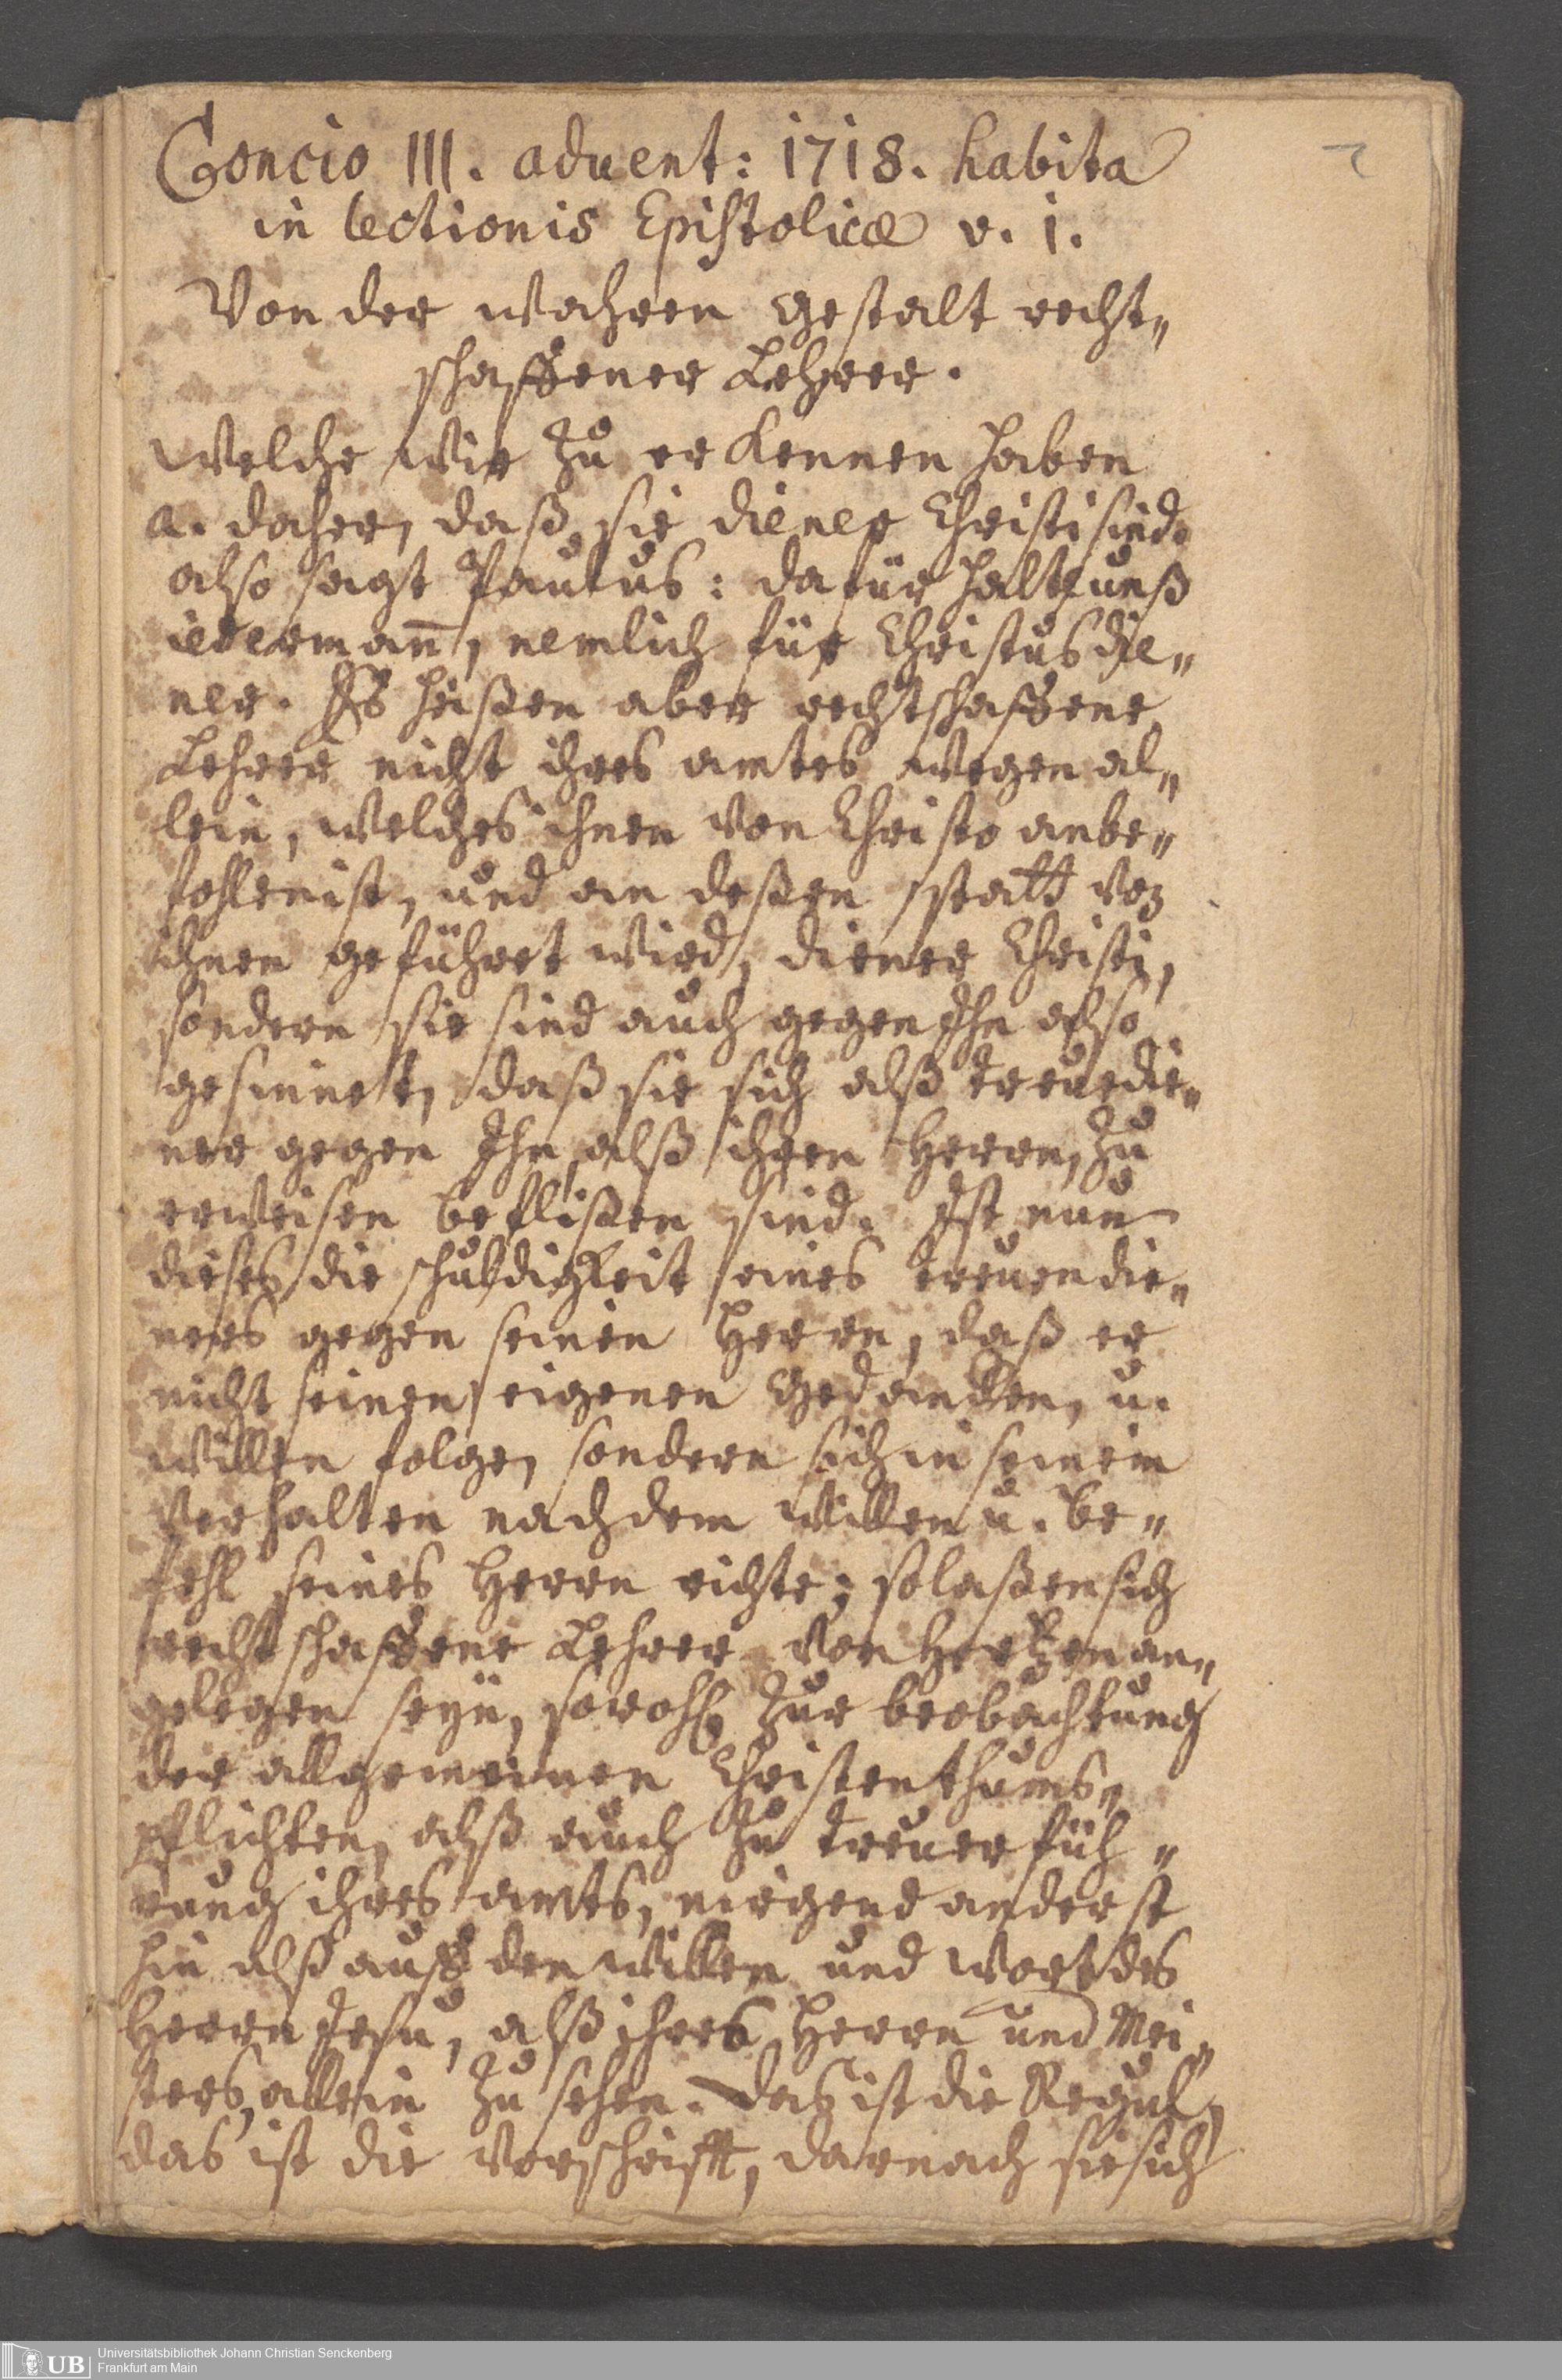 Concio III. advent: 1718. habita
in lectionis Epistolicæ v. 1.
Von der wahren gestalt recht„
schaffener Lehrer.
Welche wir zu erkennen haben
a. daher, daß sie diener Christi sind.
also sagt Paulus: dafür halte unß
iedermañ, nemlich für Christus die„
ner. Es heißen aber rechtschaffene
Lehrer nicht ihres amtes wegen al„
lein, welches ihnen von Christo anbe„
fohlen ist, und an deßen statt von
ihnen geführet wird, diener Christi,
sondern sie sind auch gegen Ihn also
gesinnet, daß sie sich alß treue die„
ner gegen Ihn, alß ihren Herrn, zu
erweisen beflißen sind. Ist nun
dieses die schuldigkeit eines treuen die„
ners gegen seinen Herrn, daß er
nicht seinen eigenen gedancken, u.
willen folge, sondern sich in seinem
verhalten nach dem willen u. be„
fehl seines Herrn richte; so laßen sich
rechtschaffene Lehrer von Hertzen an„
gelegen seyn, sowohl zur beobachtung
der allgemeinen Christenthums„
pflichten, alß auch zu treuer füh„
rung ihres amtes, nirgend anderst
hin alß auff den willen und wort des
Herrn Jesu, alß ihres Herrn und Mei„
sters, allein zu sehen. das ist die Regul,
das ist die vorschrifft, darnach sie sich
2
UB Universitätsbibliothek Johann Christian Senckenberg
Frankfurt am Main